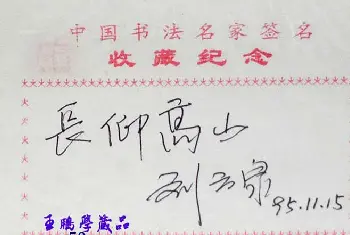 中国书法名家签名
收藏纪念
長仰高山
刘云泉
95.11.15
王鵬學藏品